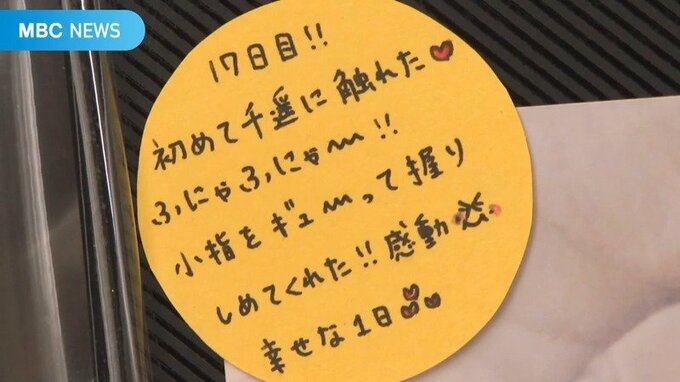 MBC NEWS
17日目!!
初めて千遥に触れた♥
ふにゃふにゃ〜!!
小指をギュ〜って握り
しめてくれた!!感動
幸せな1日